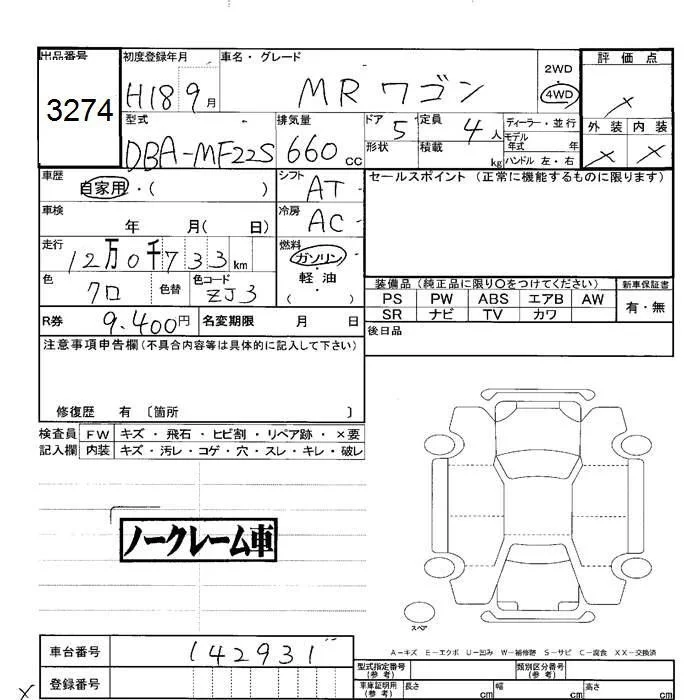 出品番号 初度登録年月 車名・グレード
3274 H18 9月 MRワゴン 2WD 4WD
評価点
×
型式 排気量 ドア 定員 ディーラー・並行
DBA-MF22S 660cc 5 4人 モデル年式 年
形状 積載 kg ハンドル 左・右
外装 内装
× ×
車歴 シフト セールスポイント(正常に機能するものに限ります)
自家用・( ) AT
車検 冷房
年 月( 日) AC
走行 燃料
12万0千733km ガソリン
軽・油
( )
色 色替 色コード
クロ ZJ3
装備品(純正品に限り〇をつけてください) 新車保証書
PS PW ABS エアB AW 有・無
SR ナビ TV カワ
R券 9,400円 名変期限 月 日
後日品
注意事項申告欄(不具合内容等は具体的に記入して下さい)
修復歴 有 〔箇所 〕
検査員 FW キズ・飛石・ヒビ割・リペア跡・×要
記入欄 内装 キズ・汚レ・コゲ・穴・スレ・キレ・破レ
ノークレーム車
スペア
A-キズ E-エクボ U-凹み W-補修跡 S-サビ C-腐食 XX-交換済
車台番号 142931
登録番号
型式指定番号(参考) 類別区分番号(参考)
車庫証明用(参考) 長さ cm 幅 cm 高さ cm
×